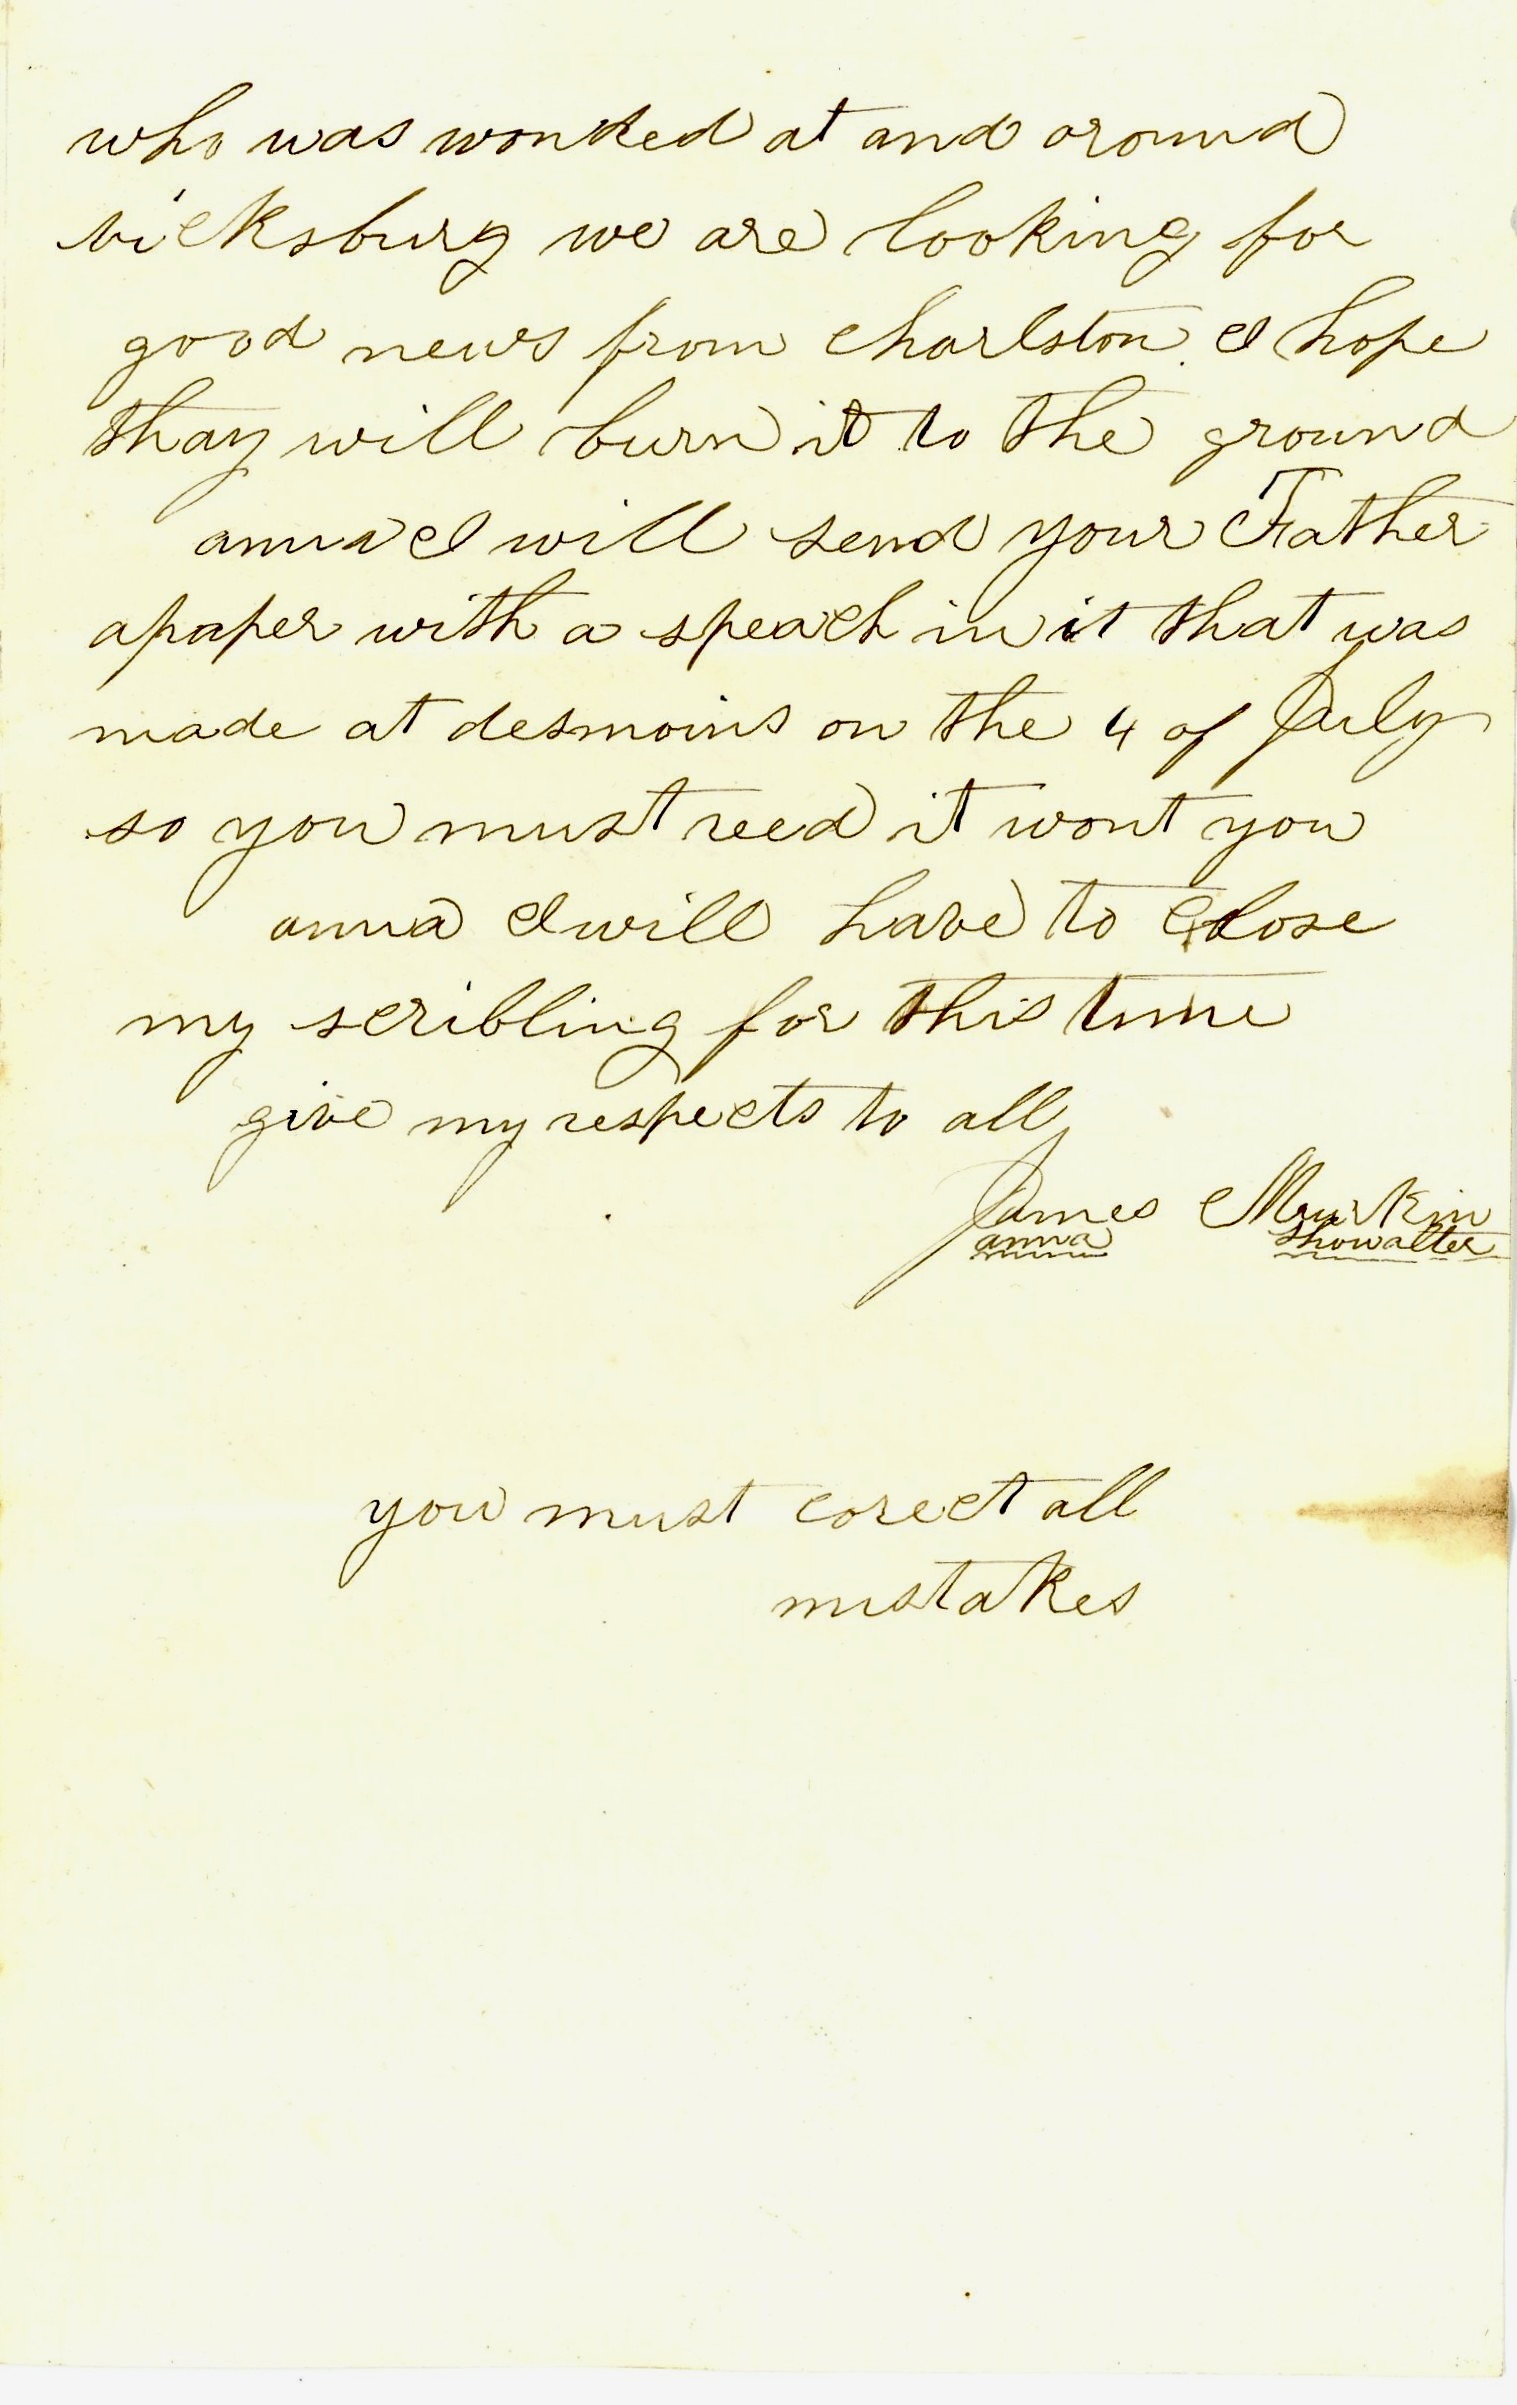 who was wonded at and around
vicksburg we are looking for
good news from charlston I hope
thay will burn it to the ground
anna I will send your Father
apaper with a speach in it that was
made at desmoins on the 4 of July
so you must reed it wont you
anna I will have to close
my scribling for this time
give my respects to all
James Murkin
anna showalter
you must corect all
mistakes